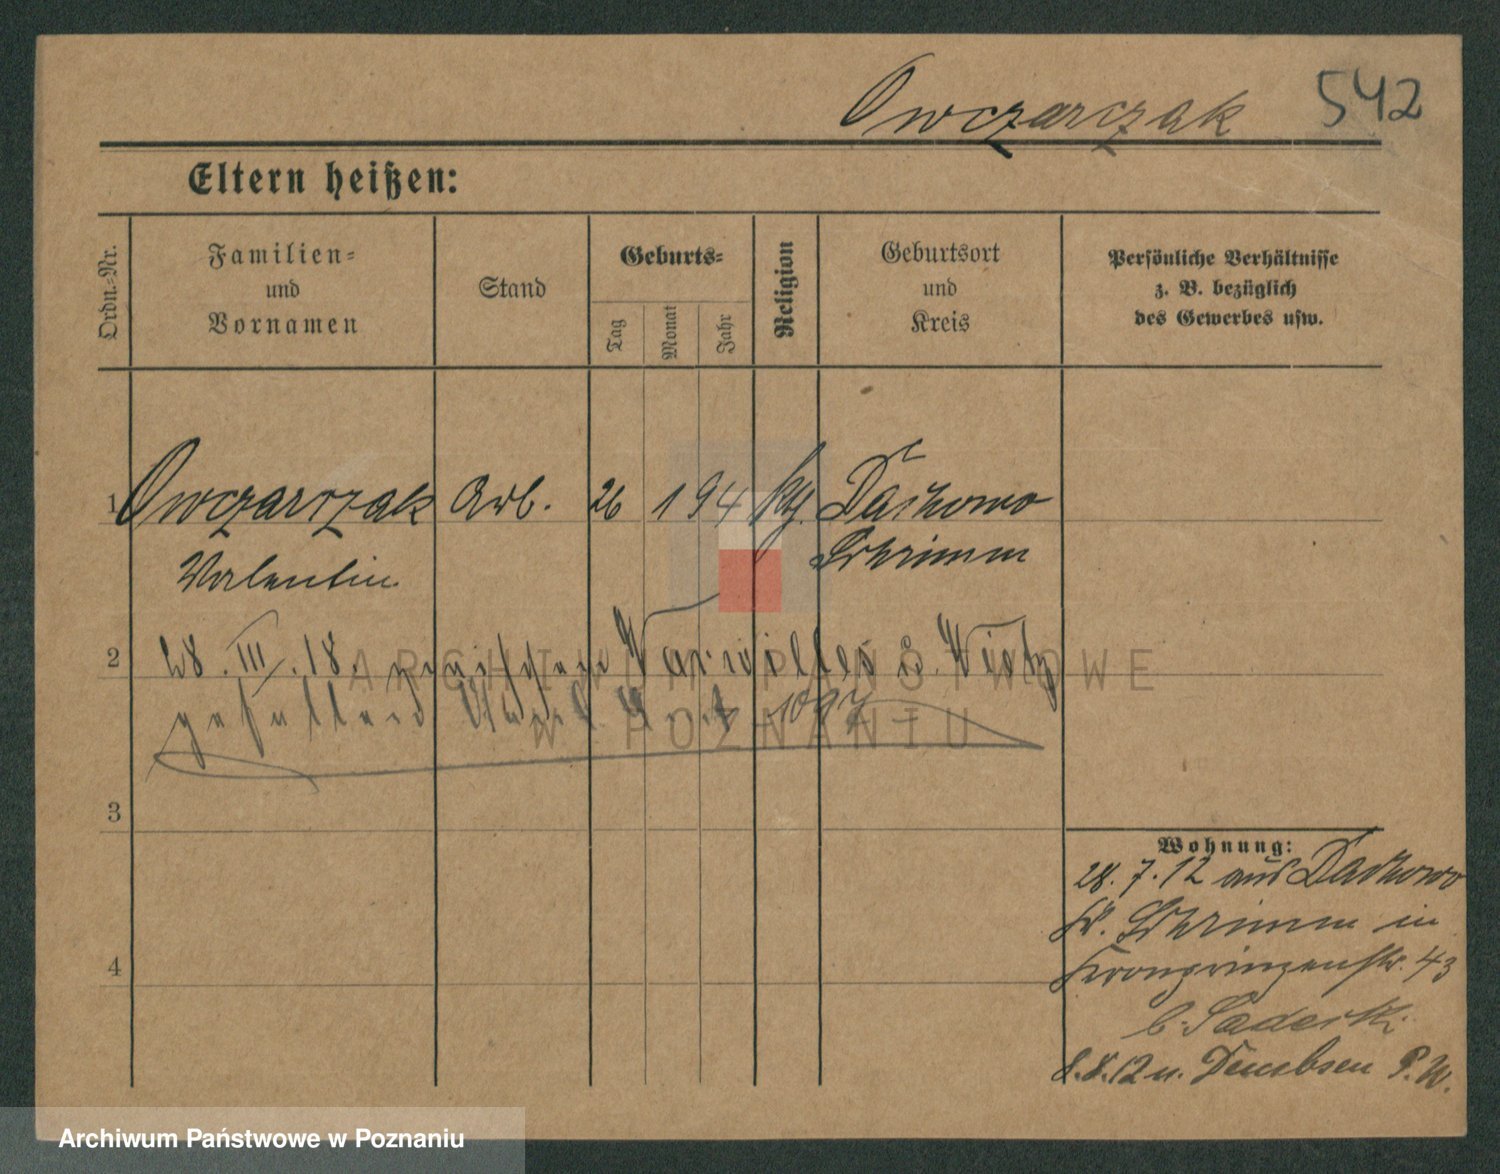 Owczarczak 542
Eltern heißen:
Ordn.-Nr.
Familien-
und
Vornamen
Stand
Geburts-
Tag
Monat
Jahr
Religion
Geburtsort
und
Kreis
Persönliche Verhältnisse
z. B. bezüglich
des Gewerbes usw.
1 Owczarczak Arb. 26 1 94 kth. Daszkowo
Valentin Schrimm
2 28. III. 18. zwischen u.
gefallen 1097
3
4
Wohnung:
28. 7. 12 aus
Kr. Schrimm in
Kronprinzenstr. 43
b. Saderski
8.8.12 n. Dembsen P. W.
ARCHIWUM PAŃSTWOWE
W POZNANIU
Archiwum Państwowe w Poznaniu